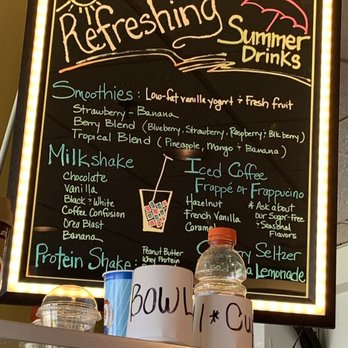 Refreshing
Summer
Drinks
Smoothies: Low-fat vanilla yogurt + Fresh fruit
Strawberry - Banana
Berry Blend (Blueberry, Strawberry, Raspberry + Blkberry)
Tropical Blend (Pineapple, Mango + Banana)
Milkshake
Chocolate
Vanilla
Black + White
Coffee Confusion
Oreo Blast
Banana
Iced Coffee
Frappé or Frappucino
Hazelnut
French Vanilla
Caramel
* Ask about
our Sugar-Free
+ Seasonal
Flavors
Protein Shake: Peanut Butter
Whey Protein
Seltzer
Lemonade
BOWL